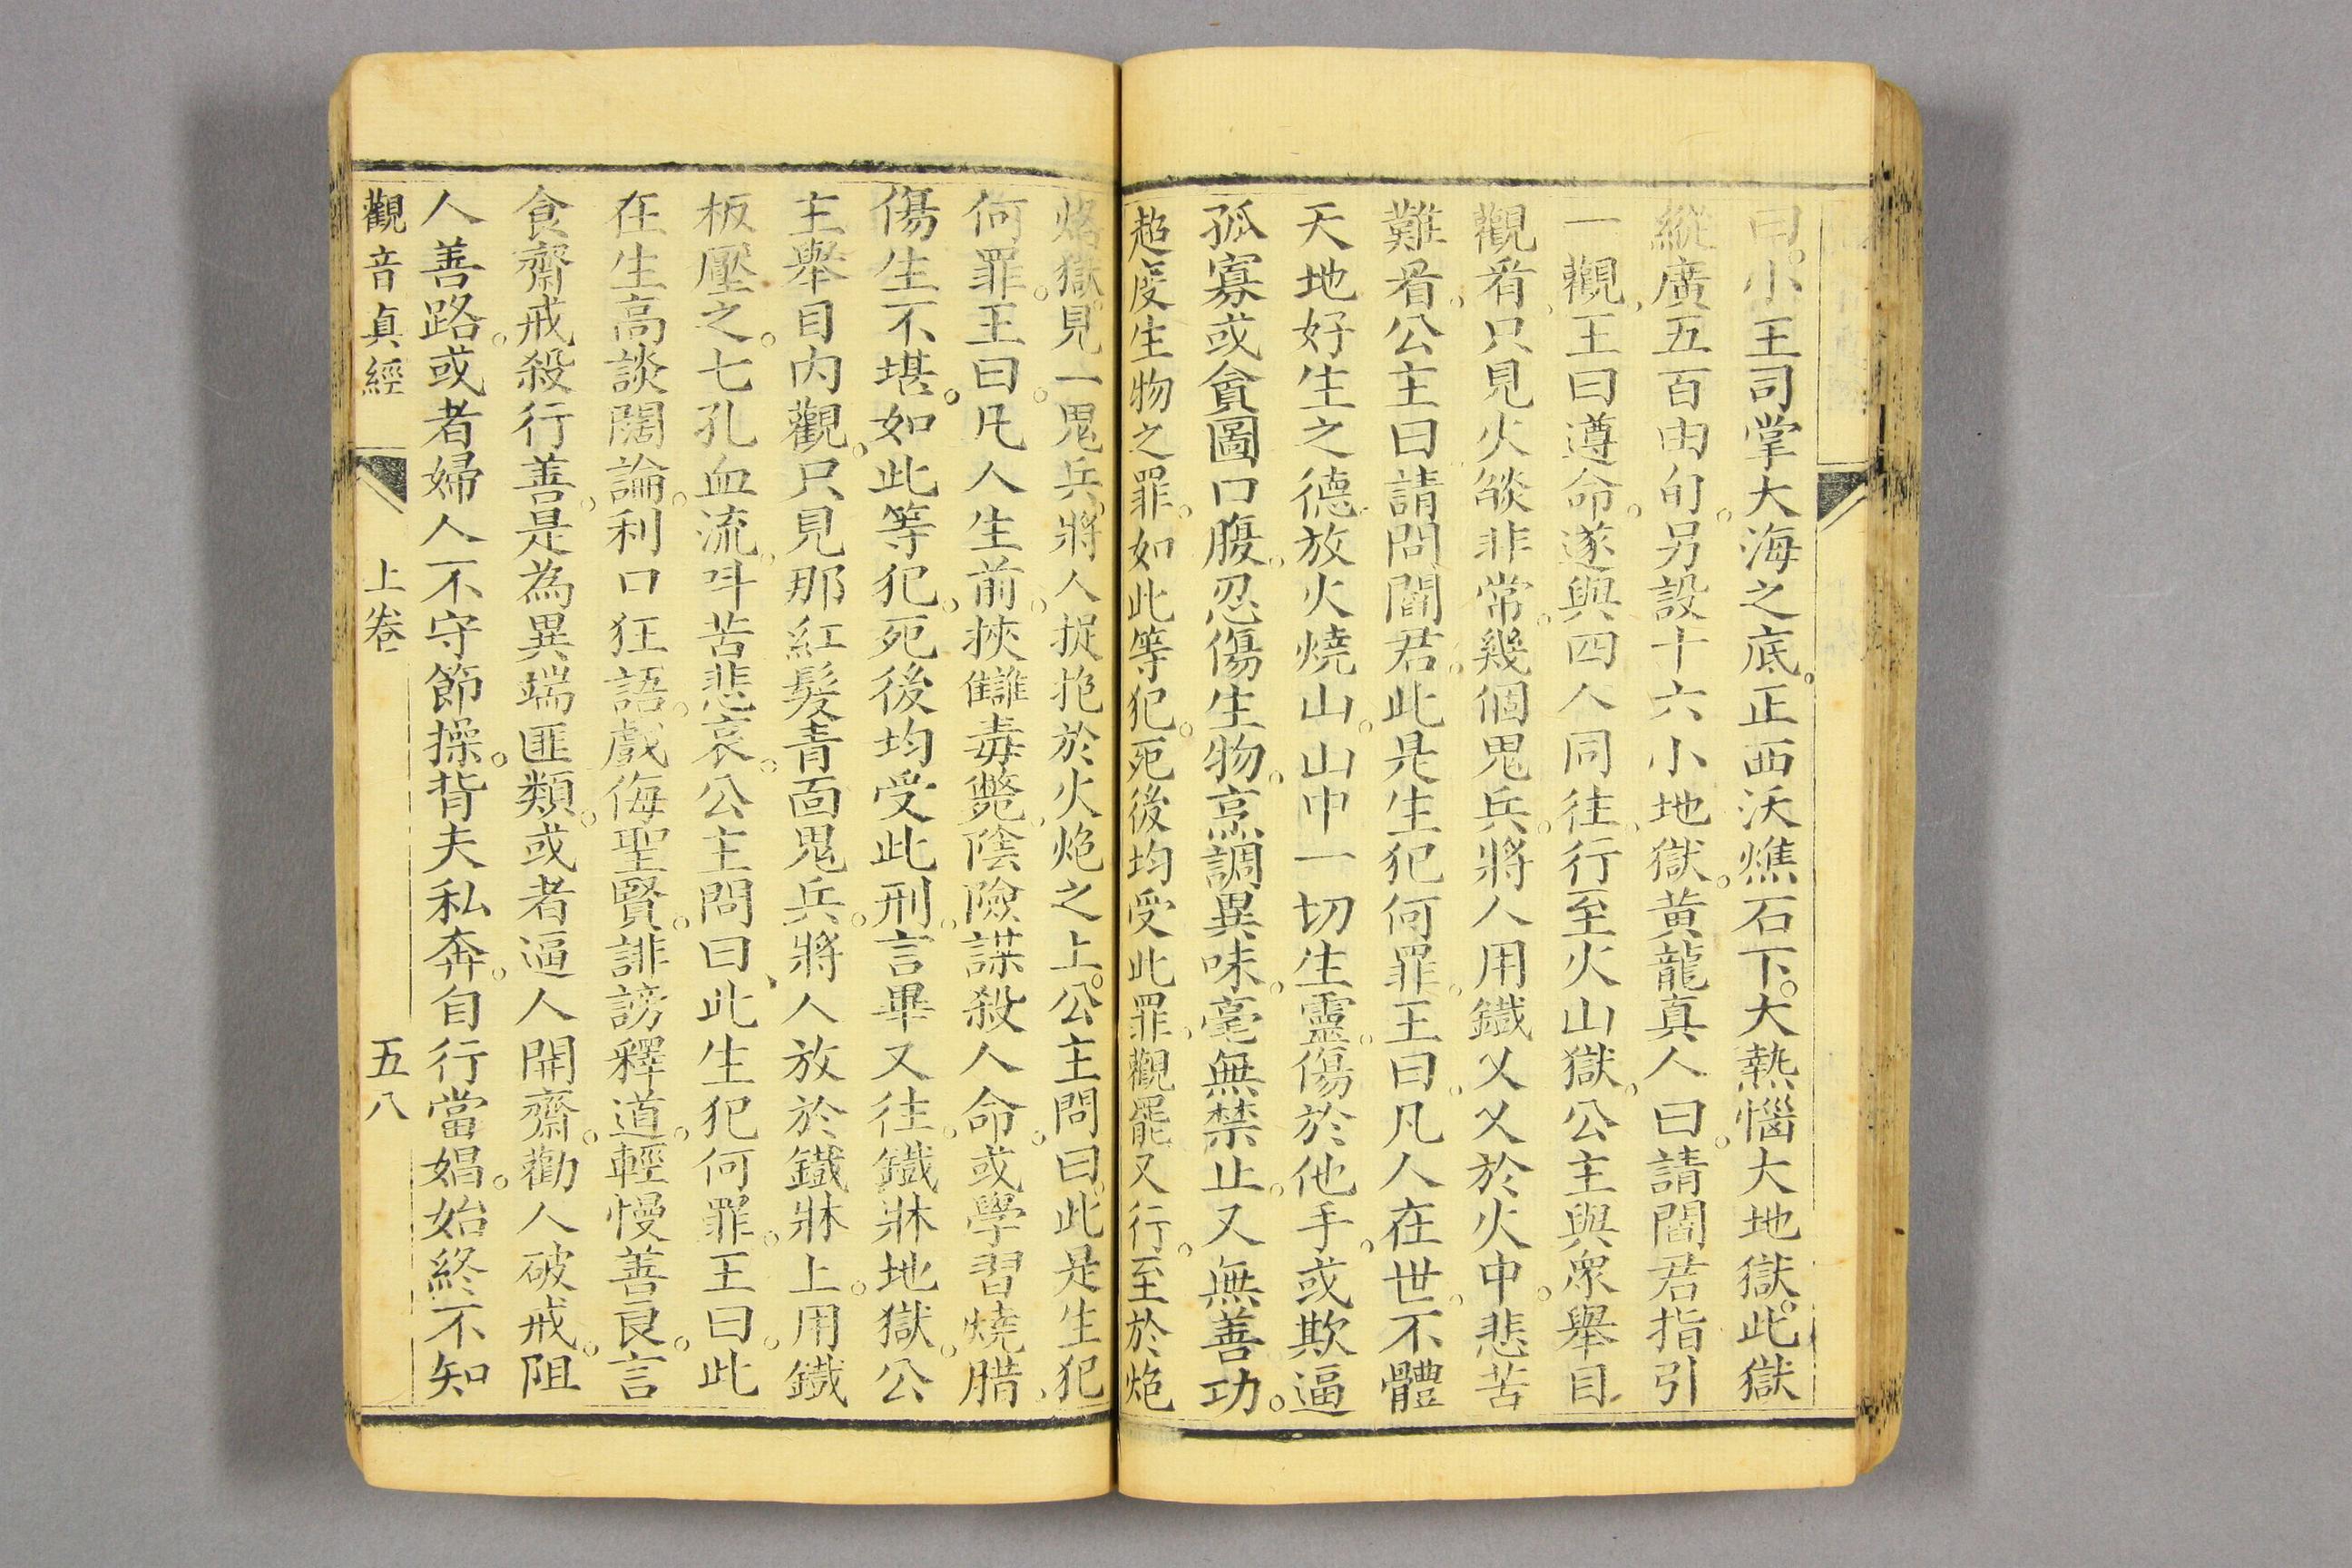 曰。小王司掌大海之底。正西沃燋石下。大熱惱大地獄。此獄
縱廣五百由旬。另設十六小地獄。黃龍真人曰。請閻君指引
一觀。王曰遵命。遂與四人同往。行至火山獄。公主與眾舉目
觀看。只見火燄非常。幾個鬼兵。將人用鐵叉叉於火中。悲苦
難看。公主曰請問閻君。此是生犯何罪。王曰。凡人在世。不體
天地好生之德。放火燒山。山中一切生靈。傷於他手。或欺逼
孤寡或貪圖口腹。忍傷生物。烹調異味。毫無禁止。又無善功。
超度生物之罪。如此等犯。死後均受此罪。觀罷又行。至於炮
烙獄。見一鬼兵。將人捉抱於火炮之上。公主問曰。此是生犯
何罪。王曰。凡人生前。挾讎毒斃。陰險謀殺人命。或學習燒腊。
傷生不堪。如此等犯。死後均受此刑。言畢又往。鐵牀地獄。公
主舉目內觀。只見那紅髮青面鬼兵。將人放於鐵牀上。用鐵
板壓之。七孔血流。呌苦悲哀。公主問曰。此生犯何罪。王曰。此
在生高談闊論。利口狂語。戲侮聖賢。誹謗釋道。輕慢善良。言
食齋戒殺行善。是為異端匪類。或者逼人開齋。勸人破戒。阻
人善路。或者婦人不守節操。背夫私奔。自行當娼。始終不知
觀音真經 上卷 五八